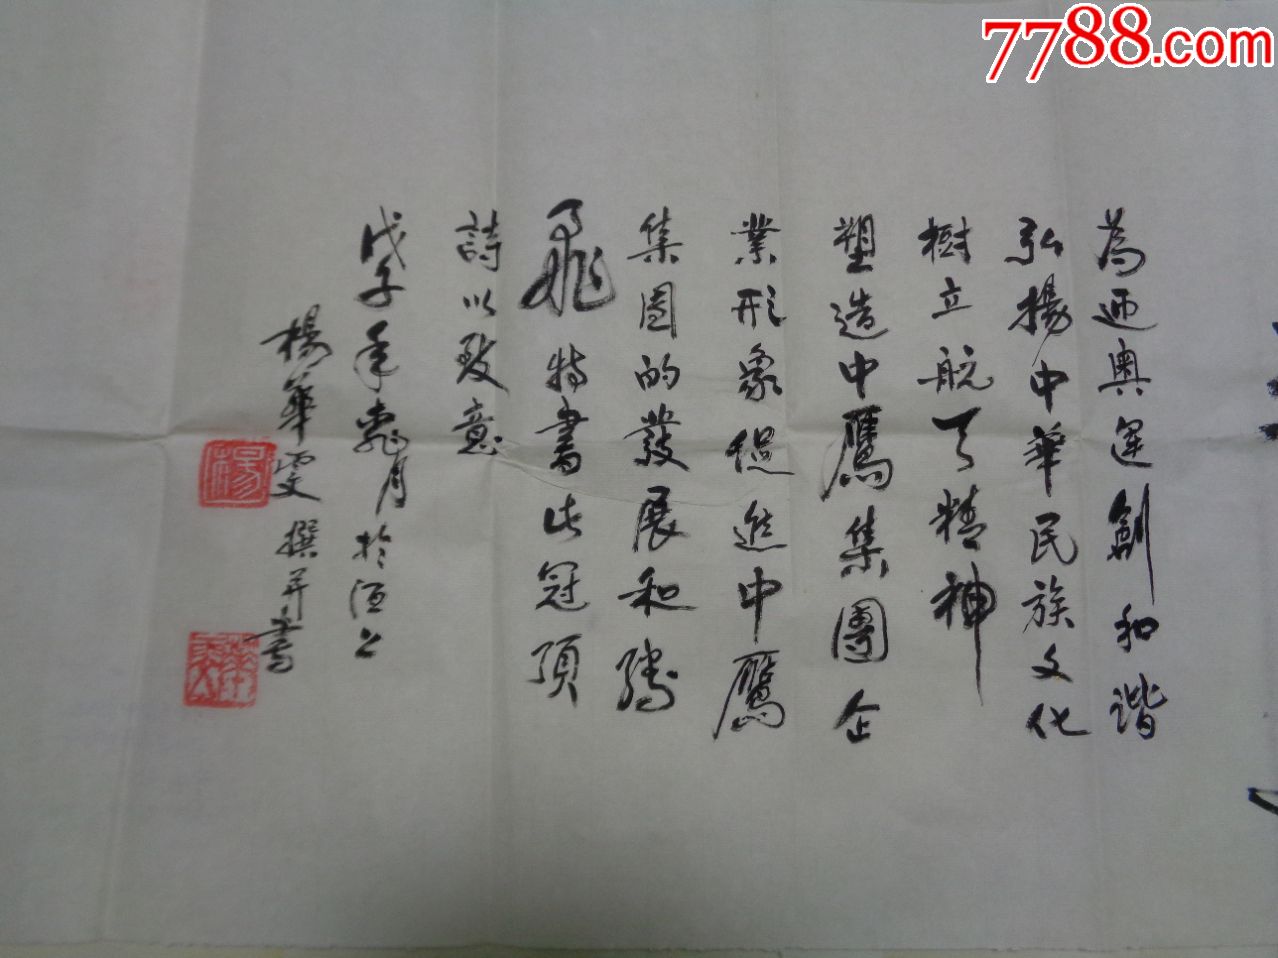 為迎奧運創和谐
弘揚中華民族文化
樹立航天精神
塑造中鷹集團企
業形象促進中鷹
集團的發展和騰
飛特書此冠頂
詩以致意
戊子年 月於酒
楊華雯撰并書
楊
7788.com